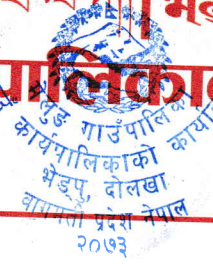 पालिका
मेलुङ गाउँपालिका
कार्यपालिकाको कार्या
भेड्पु, दोलखा
बागमती प्रदेश नेपाल
२०७३